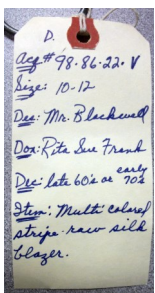 D.
Acq# 98.86.22.V
Size: 10-12
Des: Mr. Blackwell
Don: Rita Sue Frank
Dec: late 60's or early 70s
Item: Multi colored
stripe raw silk
blazer.